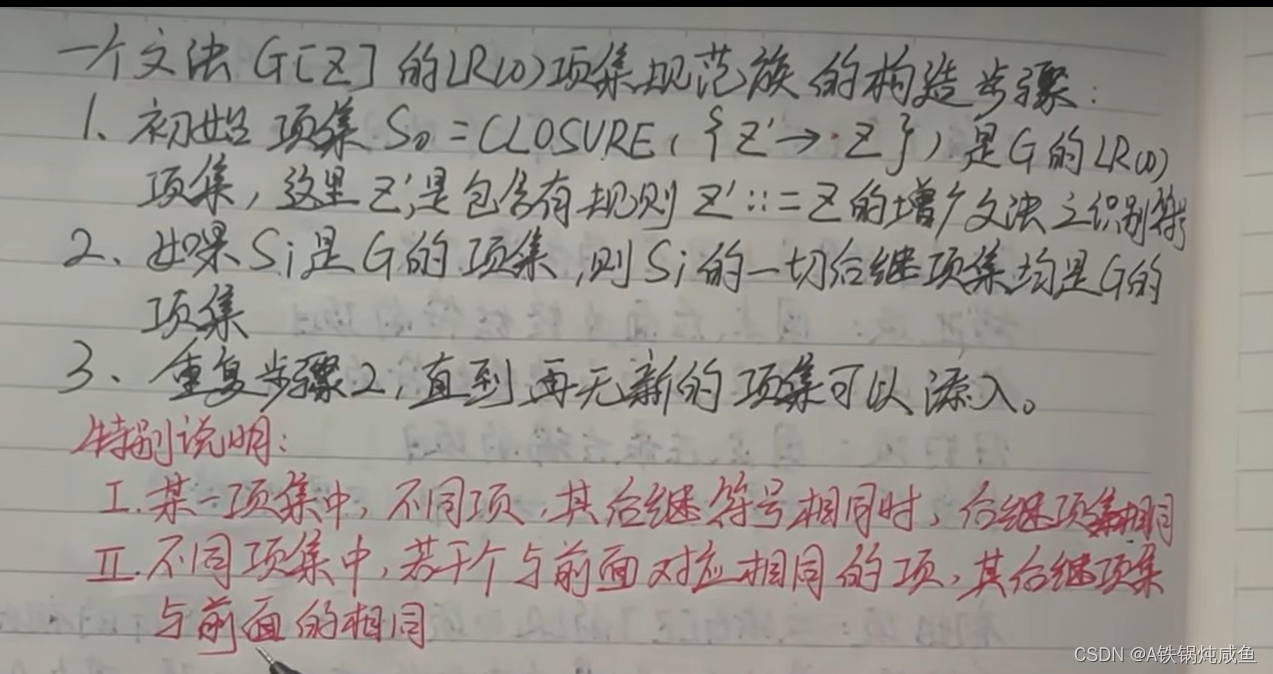 一个文法G[Z]的LR(0)项集规范族的构造步骤:
1、初始项集S0=CLOSURE({Z'→·Z})是G的LR(0)
项集,这里Z'是包含有规则Z'::=Z的增广文法之识别符号
2、如果Si是G的项集,则Si的一切后继项集均是G的
项集
3、重复步骤2,直到再无新的项集可以添入。
特别说明:
I.某一项集中,不同项,其后继符号相同时,后继项集相同
II.不同项集中,若干个与前面对应相同的项,其后继项集
与前面的相同
CSDN @A铁锅炖咸鱼